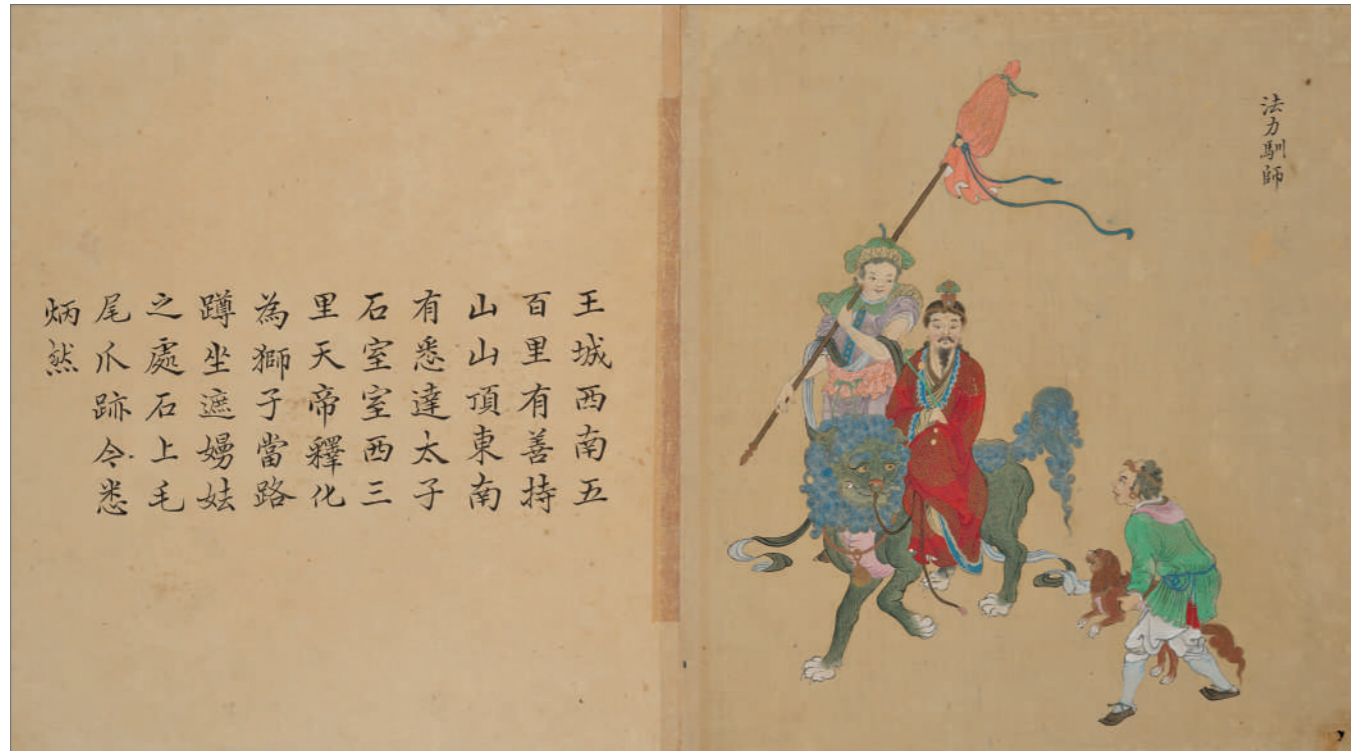 法力馴師
王城西南五
百里有善持
山山頂東南
有悉達太子
石室室西三
里天帝釋化
為獅子當路
蹲坐遮嫚妶
之處石上毛
尾爪跡今悉
炳然